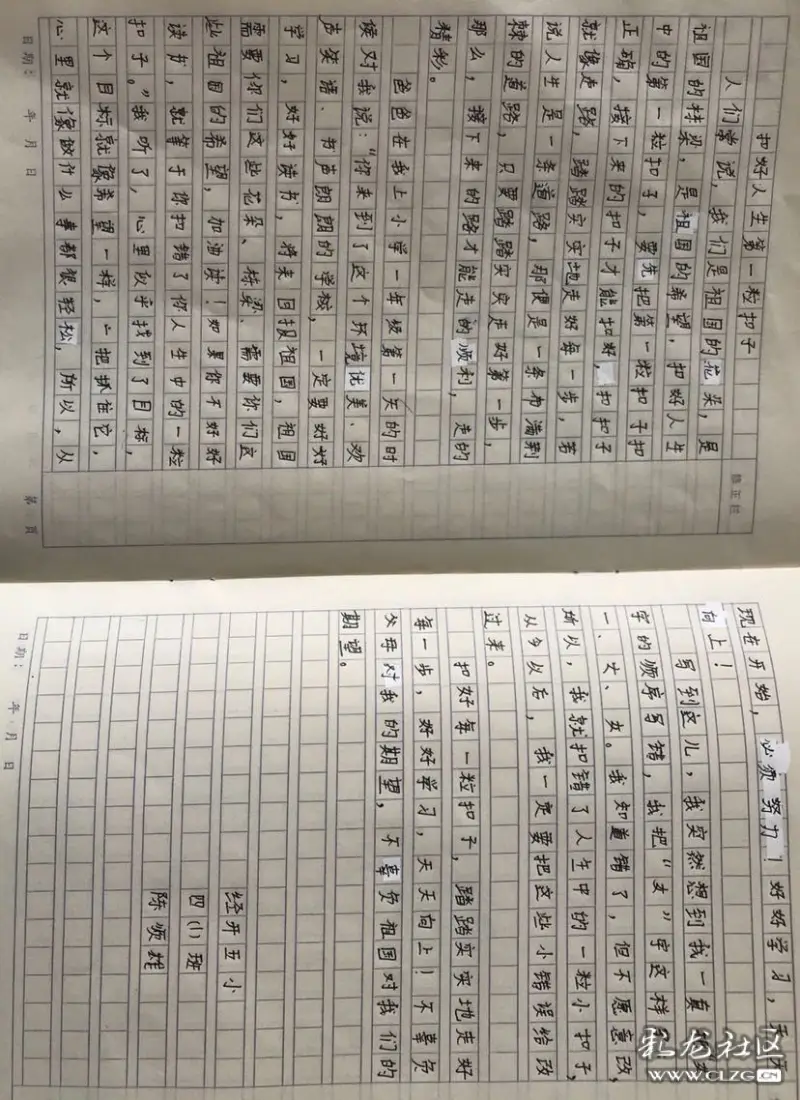 扣好人生第一粒扣子
人们常说，我们是祖国的花朵，是
祖国的栋梁，是祖国的希望，扣好人生
中的第一粒扣子，要先把第一粒扣子扣
正确，接下来的扣子才能扣好，扣扣子
就像走路，踏踏实实地走好每一步，若
说人生是一条道路，那便是一条布满荆
棘的道路，只要踏踏实实走好第一步，
那么，接下来的路才能走的顺利，走的
精彩。
爸爸在我上小学一年级第一天的时
侯对我说：“你来到了这个环境优美、欢
声笑语、书声朗朗的学校，一定要好好
学习，好好读书，将来回报祖国，祖国
需要你们这些花朵、栋梁，需要你们这
些祖国的希望，加油读！如果你不好好
读书，就等于你扣错了你人生中的一粒
扣子。”我听了，心里似乎找到了目标，
这个目标就像希望一样，一把抓住它，
心里就像做什么事都很轻松，所以，从
日期： 年 月 日
第 页
修正栏
现在开始，必须努力！好好学习，天天
向上！
写到这儿，我突然想到我一直把
字的顺序写错，我把“女”字这样写
一、丈、女。我知道错了，但不愿意改，
所以，我就扣错了人生中的一粒小扣子，
从今以后，我一定要把这些小错误给改
过来。
扣好每一粒扣子，踏踏实实地走好
每一步，好好学习，天天向上！不辜负
父母对我的期望，不辜负祖国对我们的
期望。
经开五小
四(1)班
陈顺
日期： 年 月 日
龙社区
WWW.CLZG.CN